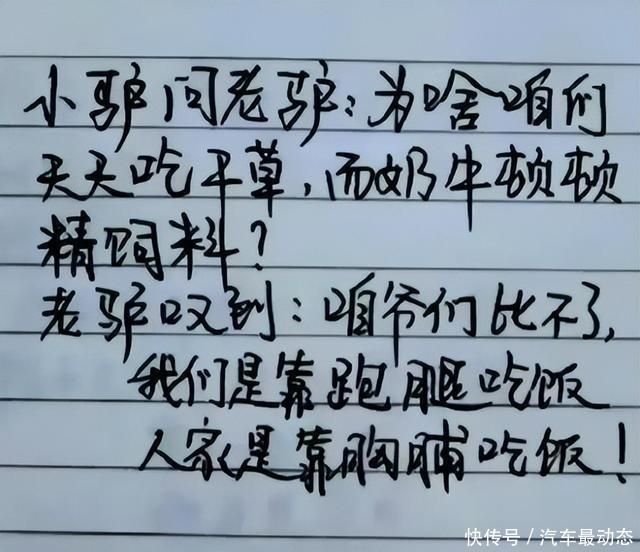 小驴问老驴：为啥咱们
天天吃干草，而奶牛顿顿
精饲料？
老驴叹到：咱爷们比不了，
我们是靠跑腿吃饭
人家是靠胸脯吃饭！
快传号／汽车最动态